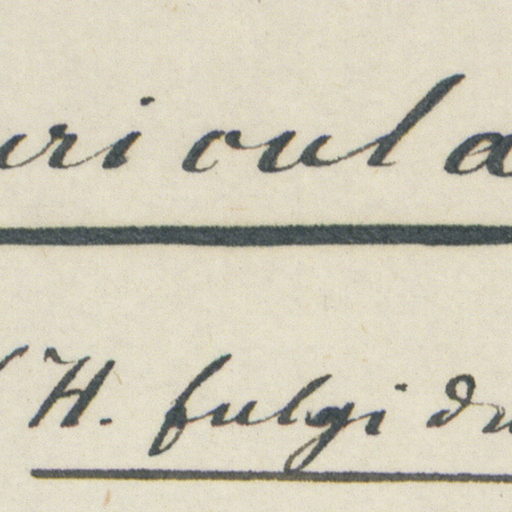 uricula
H. fulgidu